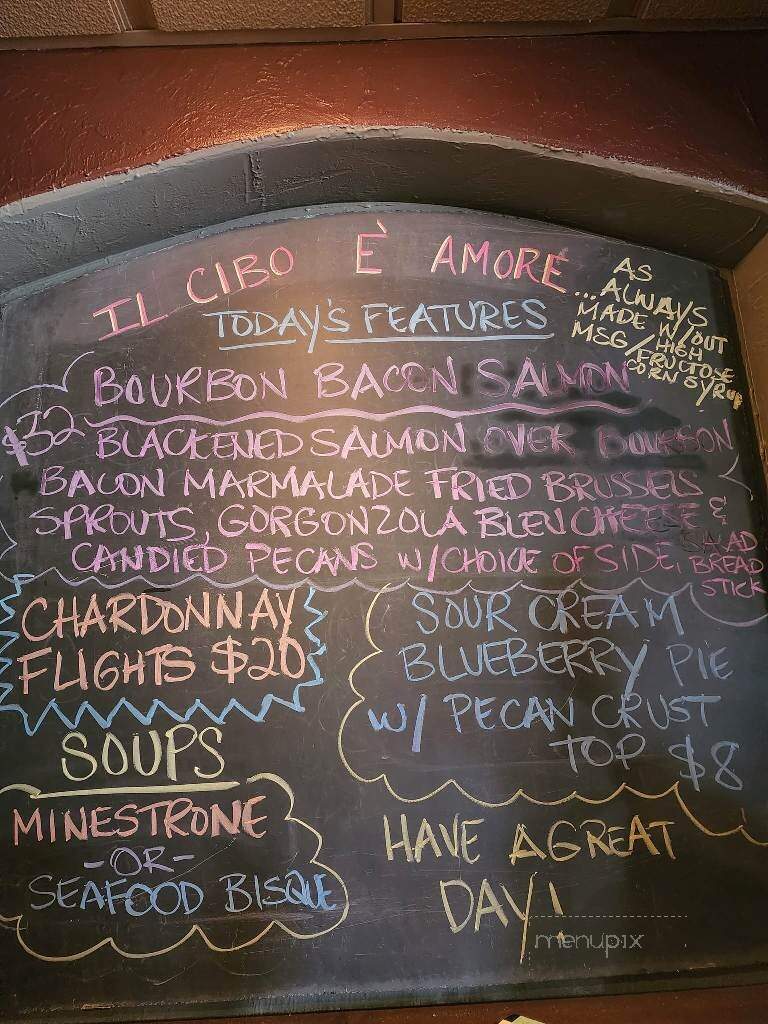 IL CIBO È AMORE
AS
...ALWAYS
MADE W/OUT
MSG/HIGH
FRUCTOSE
CORN SYRUP
TODAY'S FEATURES
BOURBON BACON SALMON
$32 BLACKENED SALMON OVER BOURBON
BACON MARMALADE FRIED BRUSSELS
SPROUTS, GORGONZOLA BLEU CHEESE &
CANDIED PECANS W/CHOICE OF SIDE, SALAD
BREAD
STICK
CHARDONNAY
FLIGHTS $20
SOUR CREAM
BLUEBERRY PIE
W/ PECAN CRUST
TOP $8
SOUPS
MINESTRONE
-OR-
SEAFOOD BISQUE
HAVE A GREAT
DAY!
menupix